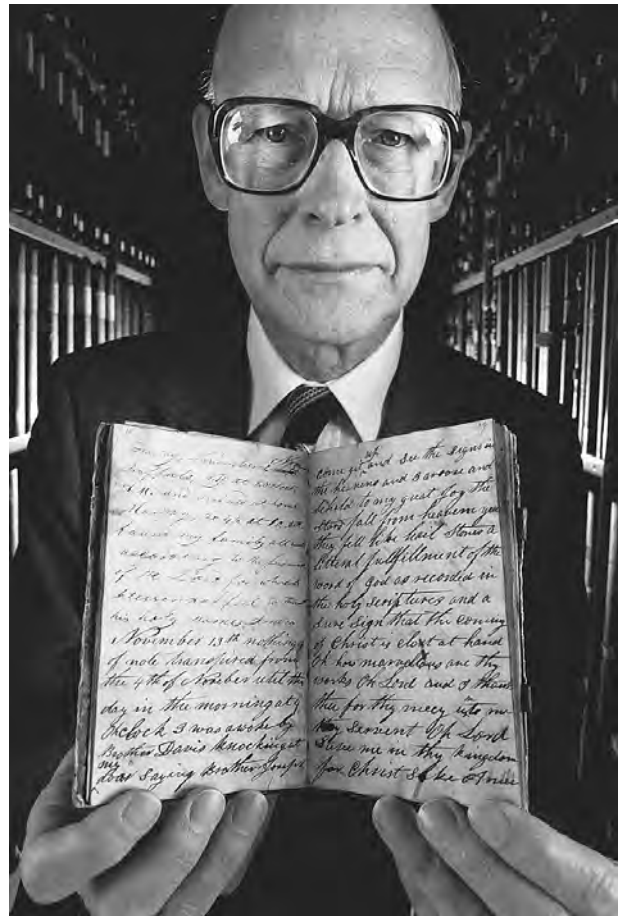 home
found my family all well
according to the promise
of the Lord for which
blessing I feel to thank
his holy name Amen
November 13th nothing
of note transpired from
the 4th of November until this
day in the morning at 4
Oh clock I was awoke by
Brother Davis knocking at
my
door saying Brother Joseph
up
come git and see the signs in
the heavens and I arose and
beheld to my great Joy the
stars fall from heaven yea
they fell like hail stones a
litteral fullfillment of the
word of God as recorded in
the holy scriptures and a
sure sign that the coming
of Christ is clost at hand
Oh how marvellous are thy
works Oh Lord and I thank
thee for thy mercy unto me
thy servent Oh Lord
save me in thy kingdom
for Christ sake Amen